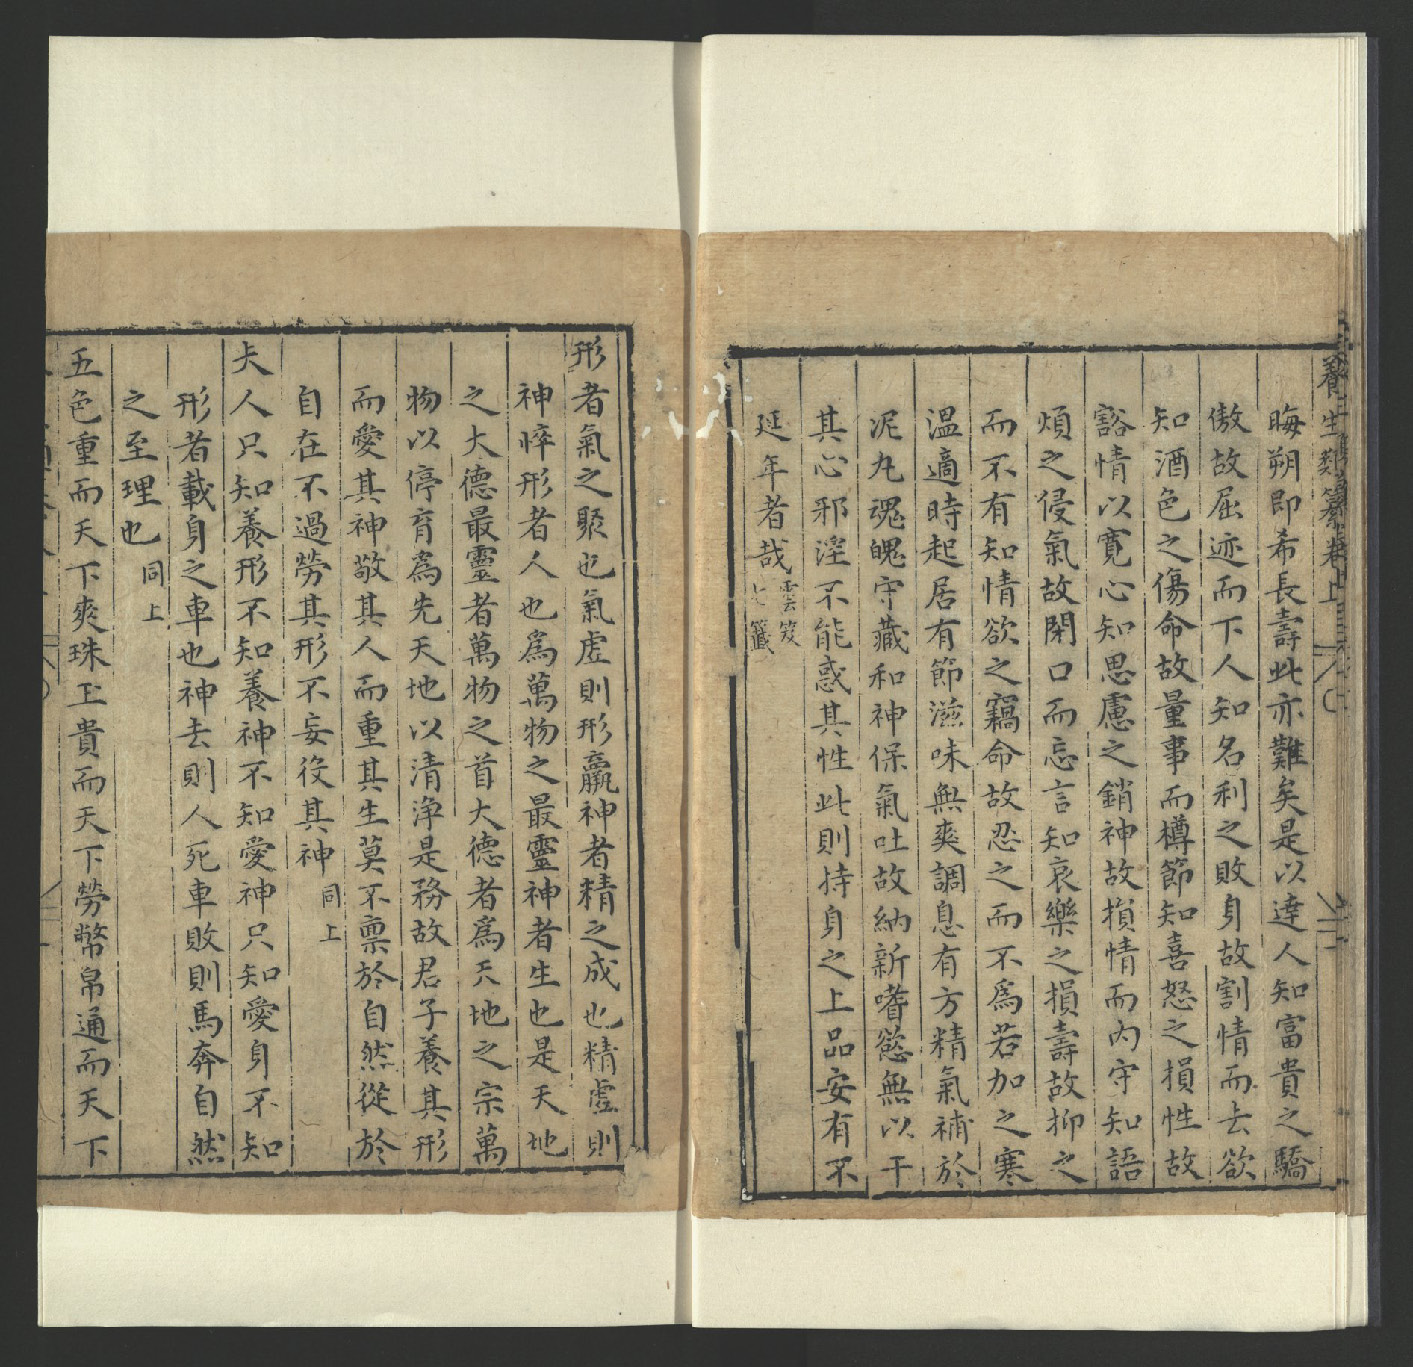 養生類纂卷上
晦朔即希長壽此亦難矣是以達人知富貴之驕
傲故屈迹而下人知名利之敗身故割情而去欲
知酒色之傷命故量事而樽節知喜怒之損性故
豁情以寬心知思慮之銷神故損情而內守知語
煩之侵氣故閉口而忘言知哀樂之損壽故抑之
而不有知情欲之竊命故忍之而不爲若加之寒
溫適時起居有節滋味無爽調息有方精氣補於
泥丸魂魄守藏和神保氣吐故納新嗜慾無以干
其心邪淫不能惑其性此則持身之上品安有不
延年者哉雲笈七籤
形者氣之聚也氣虛則形羸神者精之成也精虛則
神悴形者人也爲萬物之最靈神者生也是天地
之大德最靈者萬物之首大德者爲天地之宗萬
物以停育爲先天地以清淨是務故君子養其形
而愛其神敬其人而重其生莫不禀於自然從於
自在不過勞其形不妄役其神同上
夫人只知養形不知養神不知愛神只知愛身不知
形者載身之車也神去則人死車敗則馬奔自然
之至理也同上
五色重而天下爽珠玉貴而天下勞幣帛通而天下